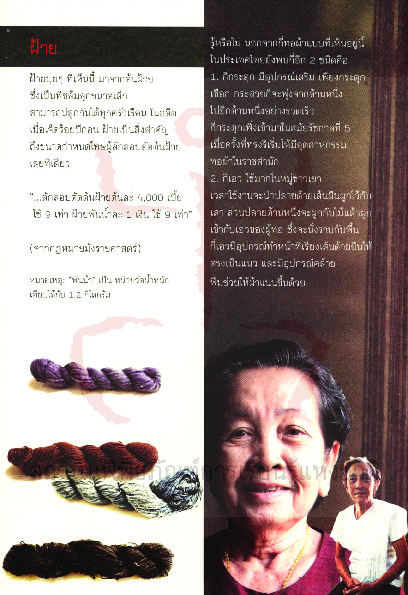 ฝ้าย
ฝ้ายปุยๆ ที่เห็นนี้ มาจากต้นฝ้าย
ซึ่งเป็นพืชล้มลุกขนาดเล็ก
สามารถปลูกกันได้ทุกครัวเรือน ในอดีต
เมื่อเจ็ดร้อยปีก่อน ฝ้ายเป็นสิ่งสำคัญ
ถึงขนาดกำหนดโทษผู้ลักลอบตัดต้นฝ้าย
เลยทีเดียว
"...ลักลอบตัดต้นฝ้ายต้นละ 4,000 เบี้ย
ใช้ 9 เท่า ฝ้ายพันน้ำละ 1 เงิน ใช้ 9 เท่า"
(จากกฎหมายมังรายศาสตร์)
หมายเหตุ: "พันน้ำ" เป็น หน่วยวัดน้ำหนัก
เทียบได้กับ 1.2 กิโลกรัม
รู้หรือไม่ นอกจากกี่ทอผ้าแบบที่เห็นอยู่นี้
ในประเทศไทยยังพบกี่อีก 2 ชนิดคือ
1. กี่กระตุก มีอุปกรณ์เสริม เพียงกระตุก
เชือก กระสวยก็จะพุ่งจากด้านหนึ่ง
ไปอีกด้านหนึ่งอย่างรวดเร็ว
กี่กระตุกเพิ่งเข้ามาในสมัยรัชกาลที่ 5
เมื่อครั้งที่ทรงริเริ่มให้มีอุตสาหกรรม
ทอผ้าในราชสำนัก
2. กี่เอว ใช้มากในหมู่ชาวเขา
เวลาใช้งานจะนำปลายด้ายเส้นยืนผูกไว้กับ
เสา ส่วนปลายด้านหนึ่งจะผูกกับไม้แล้วผูก
เข้ากับเอวของผู้ทอ ซึ่งจะนั่งราบกับพื้น
กี่เอวมีอุปกรณ์ทำหน้าที่เรียงเส้นด้ายยืนให้
ตรงเป็นแนว และมีอุปกรณ์คล้าย
ฟืมช่วยให้ผ้าแน่นขึ้นด้วย